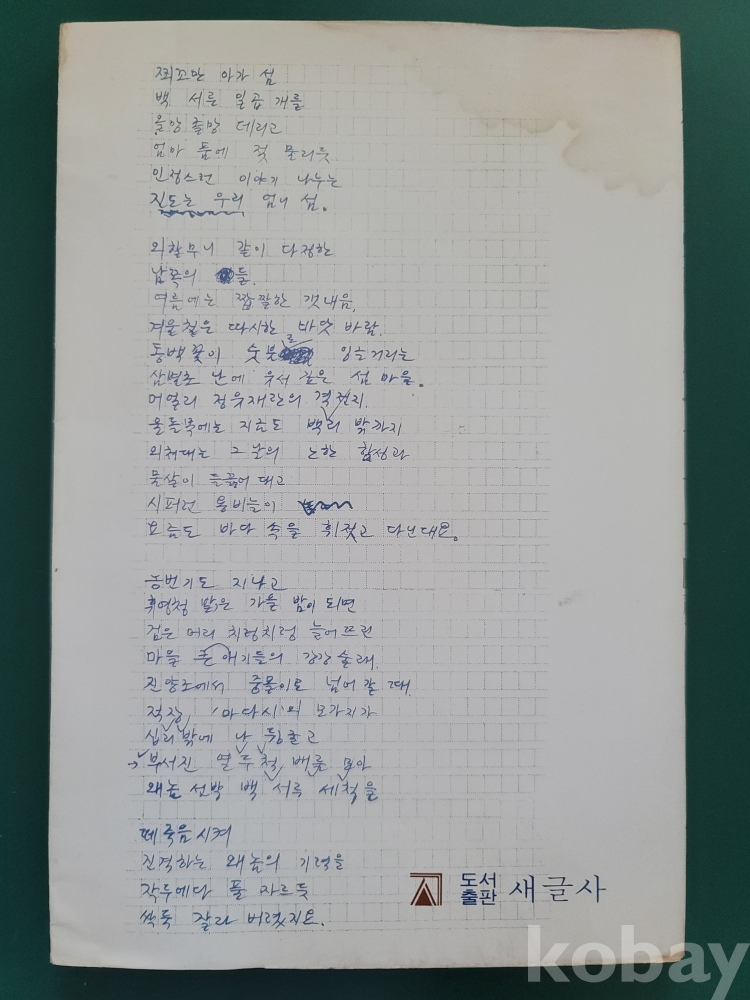 쬐꼬만 아가 섬
백 서른 일곱 개를
올망졸망 데리고
엄마 품에 젖 물리듯
인정스런 이야기 나누는
진도는 우리 엄니 섬.
외할무니 같이 다정한
남쪽의 들.
여름에는 짭짤한 갯내음,
겨울철은 따시한 바닷 바람.
동백꽃이 숯불로 이글거리는
삼별초 난에 우서 깊은 섬 마을.
머얼리 정유재란의 격전지.
울돌목에는 지금도 백리 밖까지
외쳐대는 그 날의 는한 함성과
물살이 들끓어 대고
시퍼런 용비늘이
요즘도 바다 속을 휘젓고 다닌대요.
농번기도 지나고
휘영청 맑은 가을 밤이 되면
검은 머리 치렁치렁 늘어뜨린
마을 큰 애기들의 강강술래.
진양조에서 중몰이로 넘어갈 때
적장, '마다시'의 모가지가
십리 밖에 나 뒹굴고
부서진 열두척, 배를 모아
왜놈 선박 백 서른 세척을
떼죽음시켜
진격하는 왜놈의 기력을
작두에다 풀 자르듯
싹둑 잘라 버렸지요.
도서출판 새글사
kobay